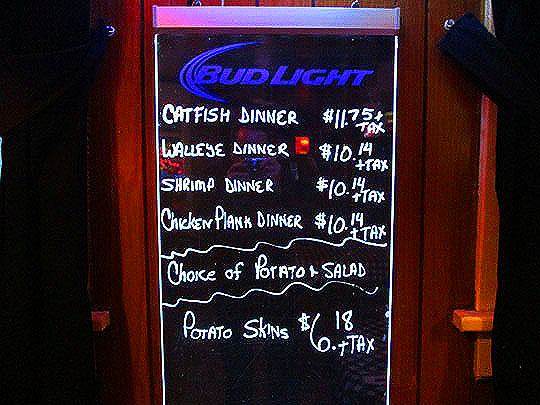 BUD LIGHT
CATFISH DINNER $11.75 + TAX
WALLEYE DINNER $10.14 + TAX
SHRIMP DINNER $10.14 + TAX
CHICKEN PLANK DINNER $10.14 + TAX
CHOICE OF POTATO & SALAD
POTATO SKINS $6.18 + TAX